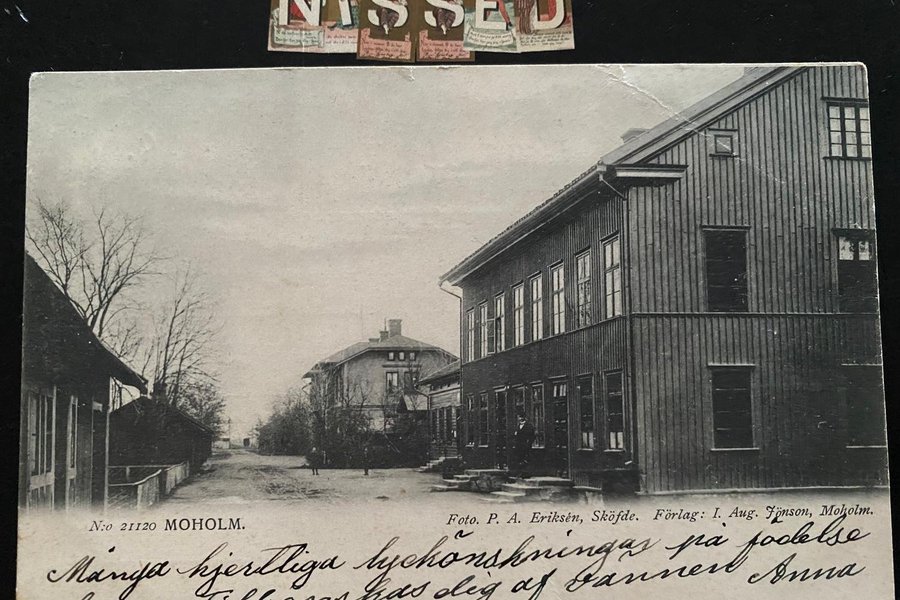 NISSED
N:o 21120 MOHOLM.
Foto. P. A. Eriksén, Sköfde. Förlag: I. Aug. Jönson, Moholm.
Många hjertliga lyckönskningar på födelse
dig af vännen Anna